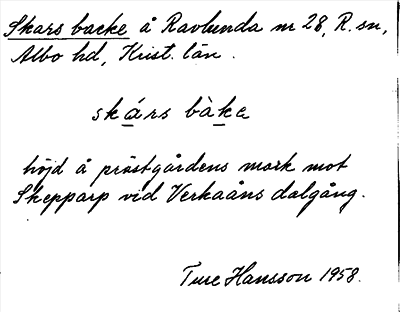 Skars backe å Ravlunda nr 28, R. sn,
Albo hd, Krist. län.
skárs bàke
höjd å prästgårdens mark mot
Skepparp vid Verkaåns dalgång.
Ture Hansson 1958.